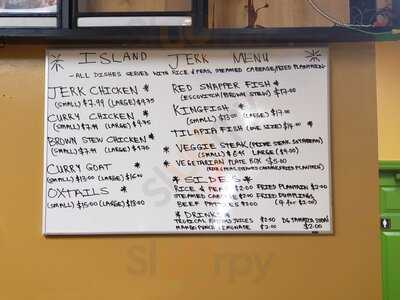 * ISLAND JERK MENU *
-ALL DISHES SERVED WITH RICE & PEAS, STEAMED CABBAGE, FRIED PLANTAIN
JERK CHICKEN *
(SMALL) $7.99 (LARGE) $9.75
CURRY CHICKEN *
(SMALL) $7.99 (LARGE) $9.75
BROWN STEW CHICKEN *
(SMALL) $7.99 (LARGE) $9.75
CURRY GOAT *
(SMALL) $13.00 (LARGE) $16.00
OXTAILS *
(SMALL) $15.00 (LARGE) $18.00
RED SNAPPER FISH *
(ESCOVITCH/BROWN STEW) $17.00
KINGFISH *
(SMALL) $13.00 (LARGE) $17.00
TILAPIA FISH (ONE SIZE) $14.00 *
* VEGGIE STEAK
(SMALL) (LARGE)
* VEGETARIAN PLATE BOX $5.00
(RICE & PEAS, STEAMED CABBAGE, FRIED PLANTAIN)
* SIDES *
RICE & PEAS $2.00 FRIED PLANTAIN $2.00
STEAMED CABBAGE $2.00 FRIED DUMPLING
BEEF PATTIES (4 for $2.00)
* DRINKS *
TROPICAL JUICES $2.50 DG JAMAICA SODA
MANGO PUNCH LEMONADE $2.00 $2.00